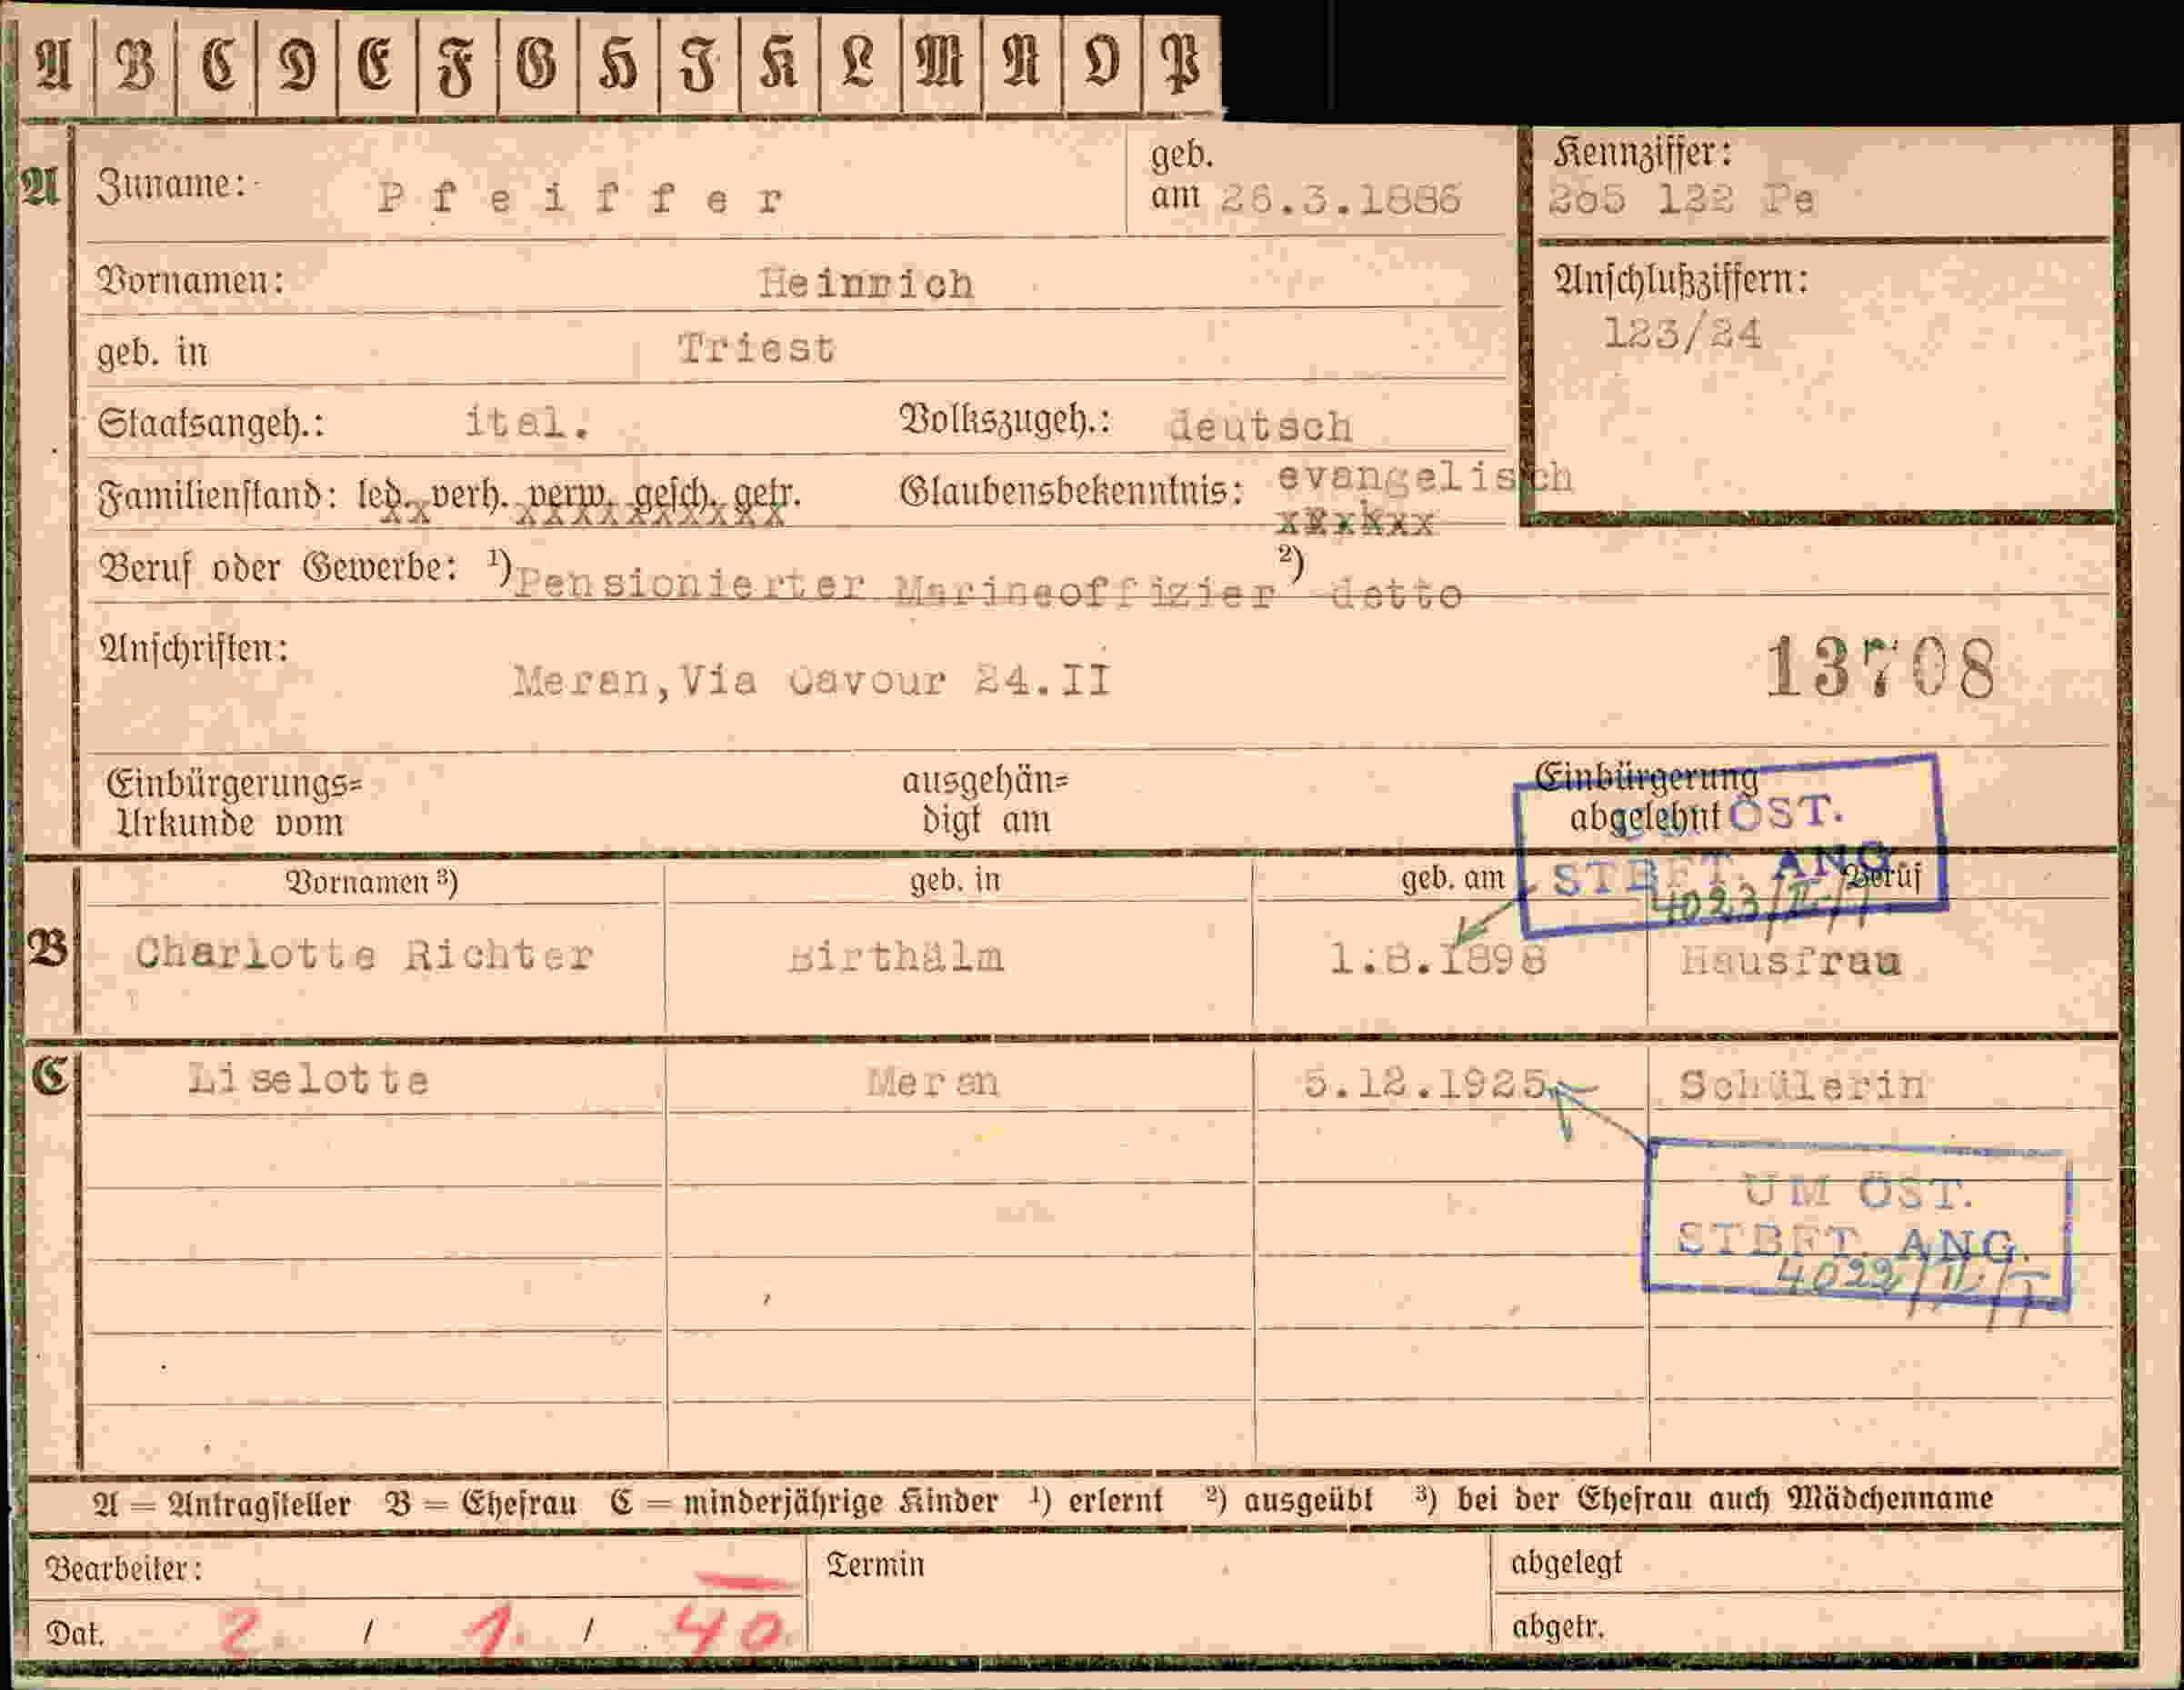 A B C D E F G H I K L M N O P
A Zuname: Pfeiffer geb. am 26.3.1886
Kennziffer: 265 122 Pe
Vornamen: Heinrich
Anschlußziffern: 123/24
geb. in Triest
Staatsangeh.: ital. Volkszugeh.: deutsch
Familienstand: led. verh. verw. gesch. getr. Glaubensbekenntnis: evangelisch
Beruf oder Gewerbe: ¹) Pensionierter Marineoffizier ²) detto
Anschriften: Meran, Via Cavour 24.II
13708
Einbürgerungs= Urkunde vom ausgehän= digt am Einbürgerung abgelehnt
ÖST.
STBFT. ANG
4023/II/T
Vornamen ³) geb. in geb. am Beruf
B Charlotte Richter Birthälm 1.8.1898 Hausfrau
C Liselotte Meran 5.12.1925 Schülerin
UM ÖST.
STBFT. ANG.
4022/II/T
A = Antragsteller B = Ehefrau C = minderjährige Kinder ¹) erlernt ²) ausgeübt ³) bei der Ehefrau auch Mädchenname
Bearbeiter: Termin abgelegt
Dat. 2. / 1. / 40 abgetr.